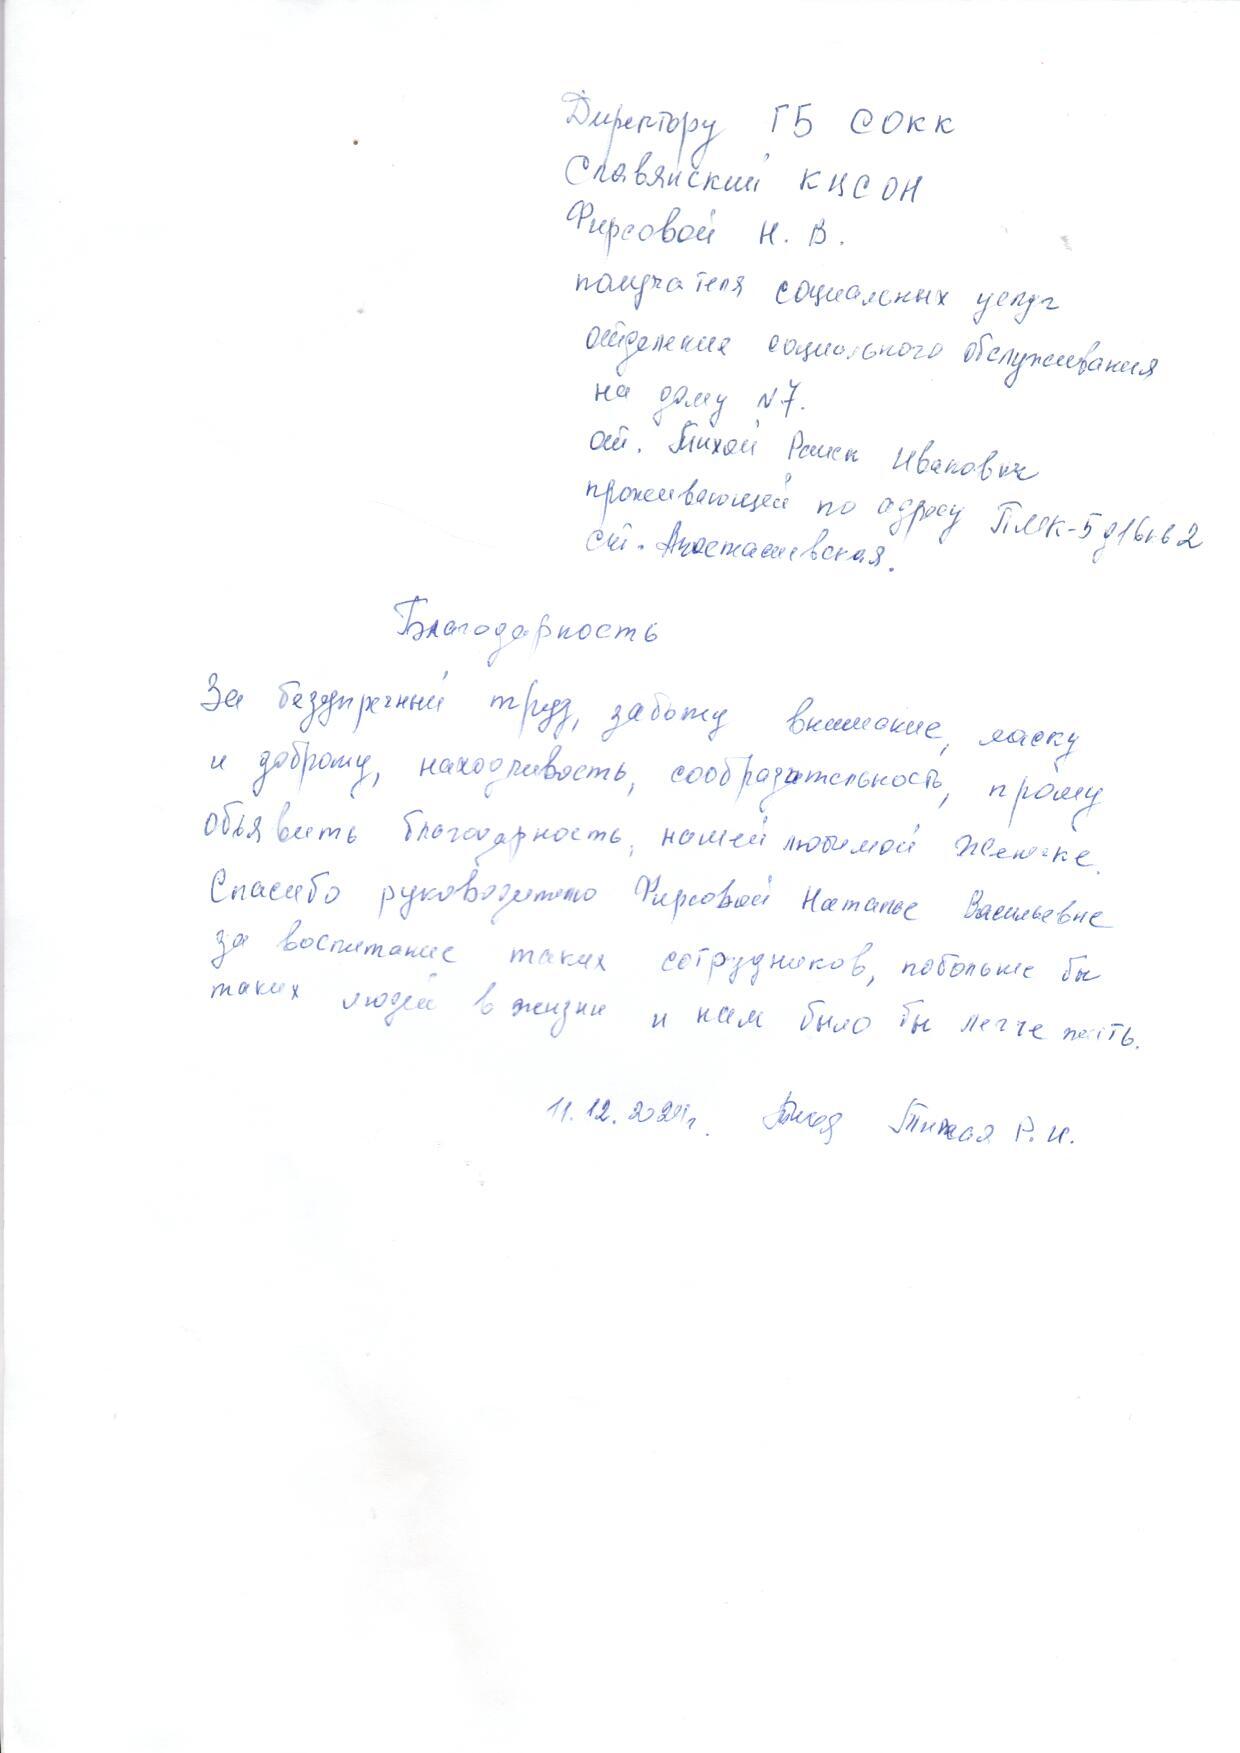 Директору ГБ СОКК
Славянский КЦСОН
Фирсовой Н. В.
получателя социальных услуг
отделение социального обслуживания
на дому №7.
от. Тихой Раисы Ивановны
проживающей по адресу ПМК-5 д16кв2
ст. Анастасиевская.
Благодарность
За безупречный труд, заботу внимание, ласку
и доброту, находчивость, сообразительность, прошу
объявить благодарность, нашей любимой Женечке.
Спасибо руководителю Фирсовой Наталье Васильевне
за воспитание таких сотрудников, побольше бы
таких людей в жизни и нам было бы легче жить.
11.12. Тихая Тихая Р. И.